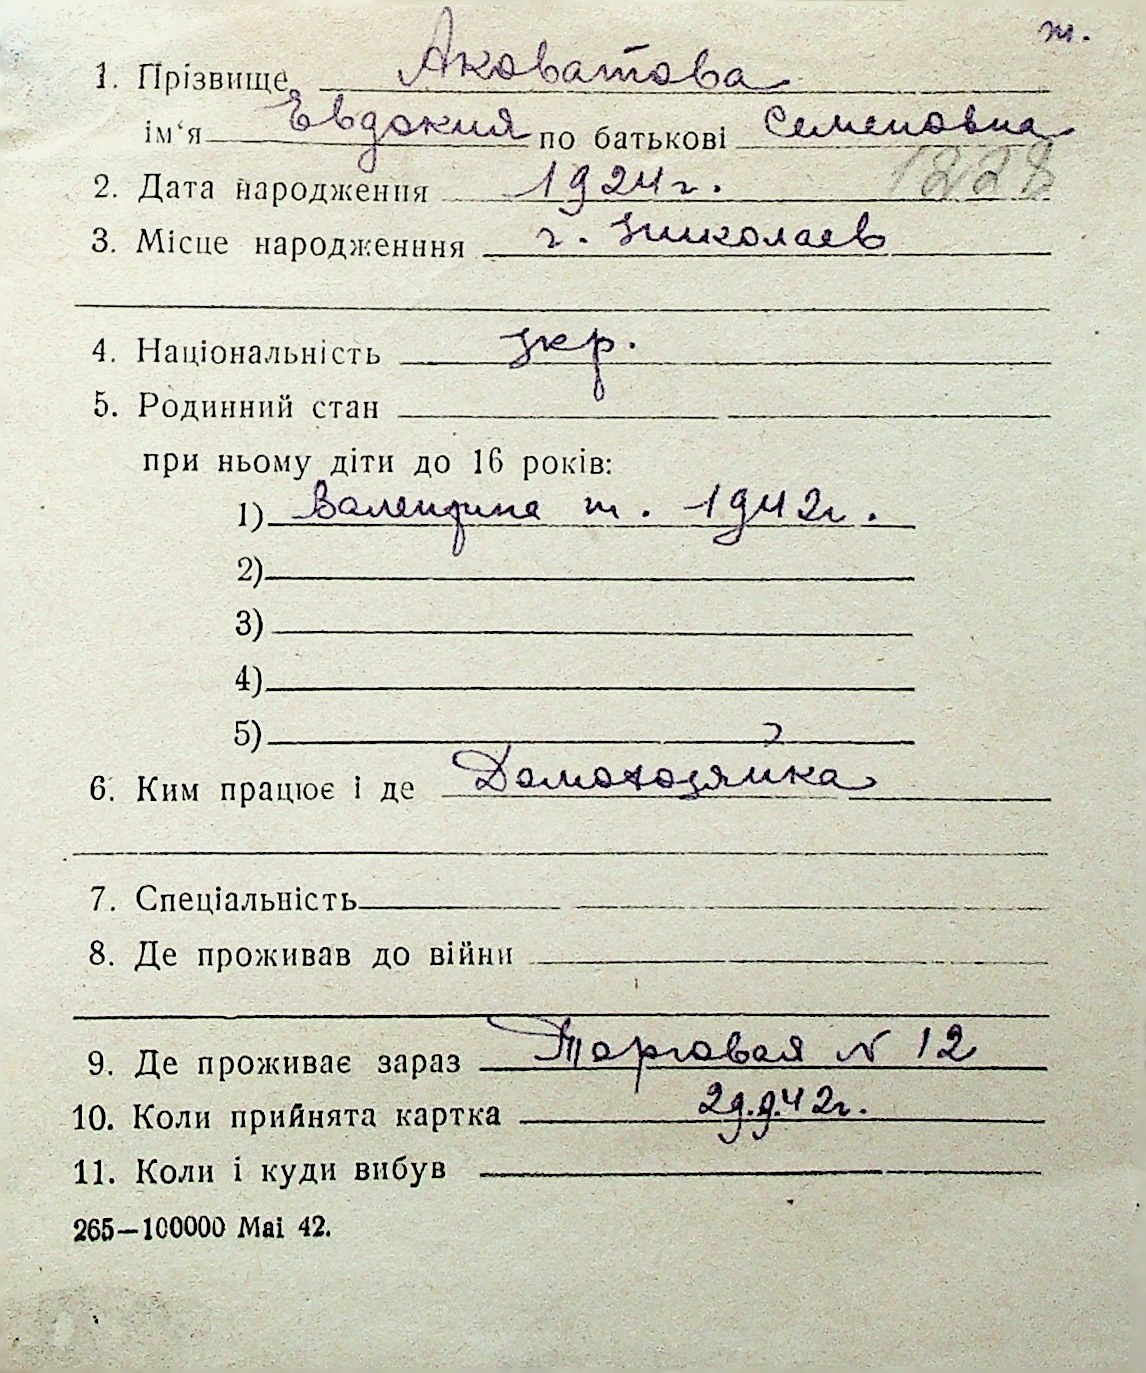 ж.
1. Прізвище Аковатова
ім'я Евдокия по батькові Семеновна
1228
2. Дата народження 1924 г.
3. Місце народженння г. Николаев
4. Національність Укр.
5. Родинний стан
при ньому діти до 16 років:
1) Валентина ж. 1942г.
2)
3)
4)
5)
6. Ким працює і де Домохозяйка
7. Спеціальність
8. Де проживав до війни
9. Де проживає зараз Торговая N 12
10. Коли прийнята картка 29.9.42г.
11. Коли і куди вибув
265—100000 Mai 42.